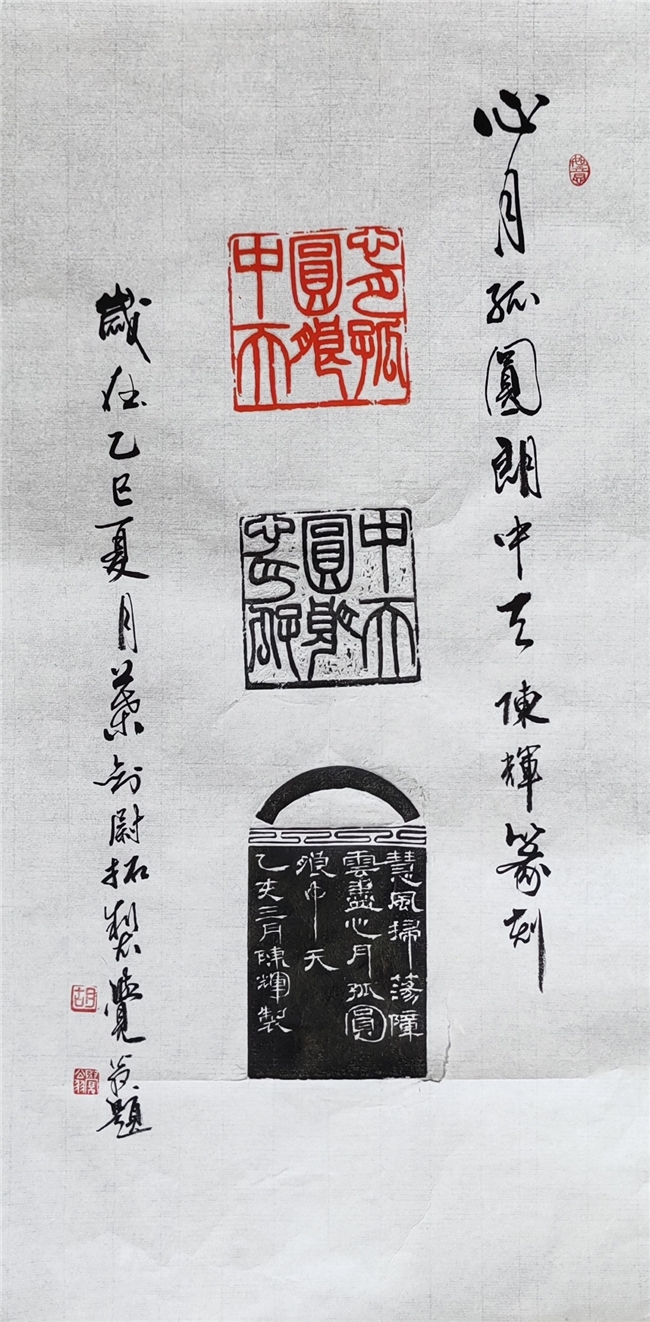 心月孤圓朗中天 陳輝篆刻
心月孤
圓朗
中天
心月孤
圓朗
中天
慧風掃蕩障
雲盡心月孤圓
朗中天
乙亥三月陳輝製
歲在乙巳夏月葉劍尉拓製覺翁題
胡